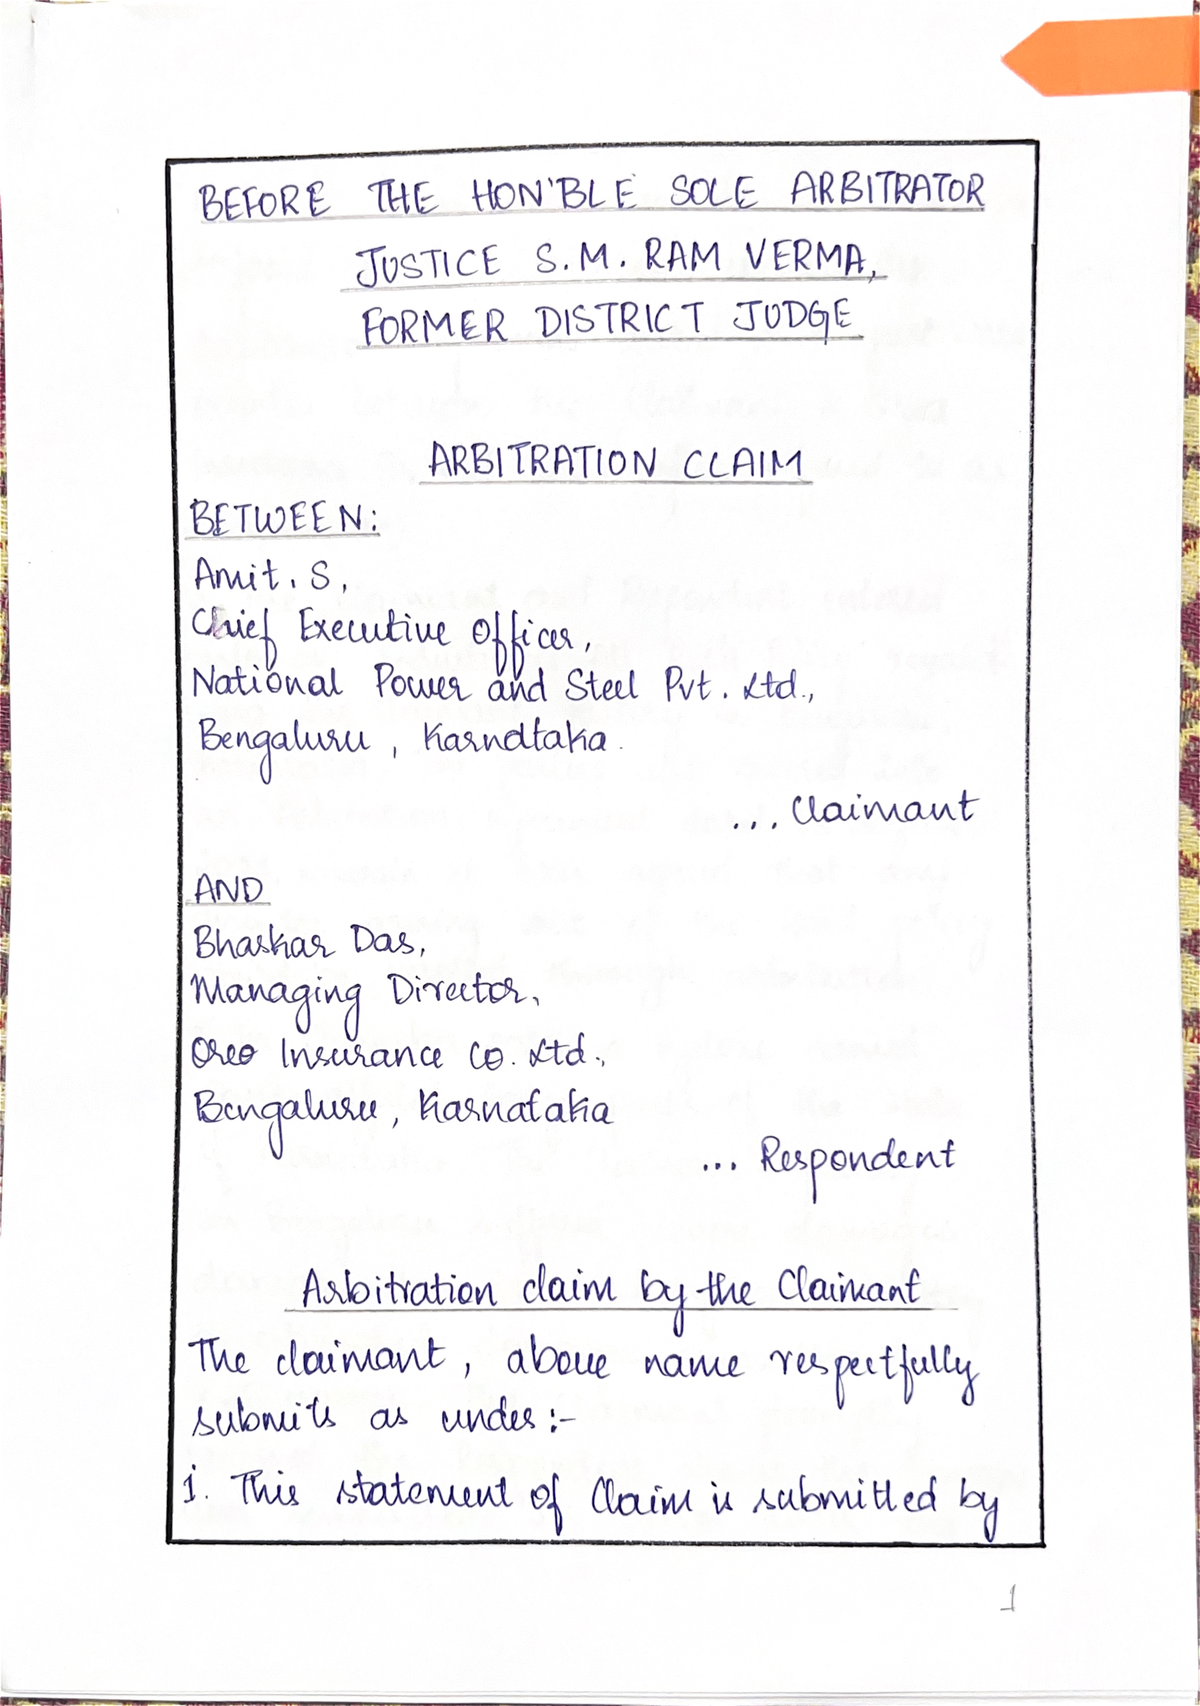 BEFORE THE HON'BLE SOLE ARBITRATOR
JUSTICE S.M. RAM VERMA,
FORMER DISTRICT JUDGE
ARBITRATION CLAIM
BETWEEN:
Amit. S,
Chief Executive Officer,
National Power and Steel Pvt. Ltd.,
Bengaluru, Karnataka.
... Claimant
AND
Bhaskar Das,
Managing Director,
Oreo Insurance Co. Ltd.,
Bengaluru, Karnataka
... Respondent
Arbitration claim by the Claimant
The claimant, above name respectfully
submits as under :-
i. This statement of Claim is submitted by
1